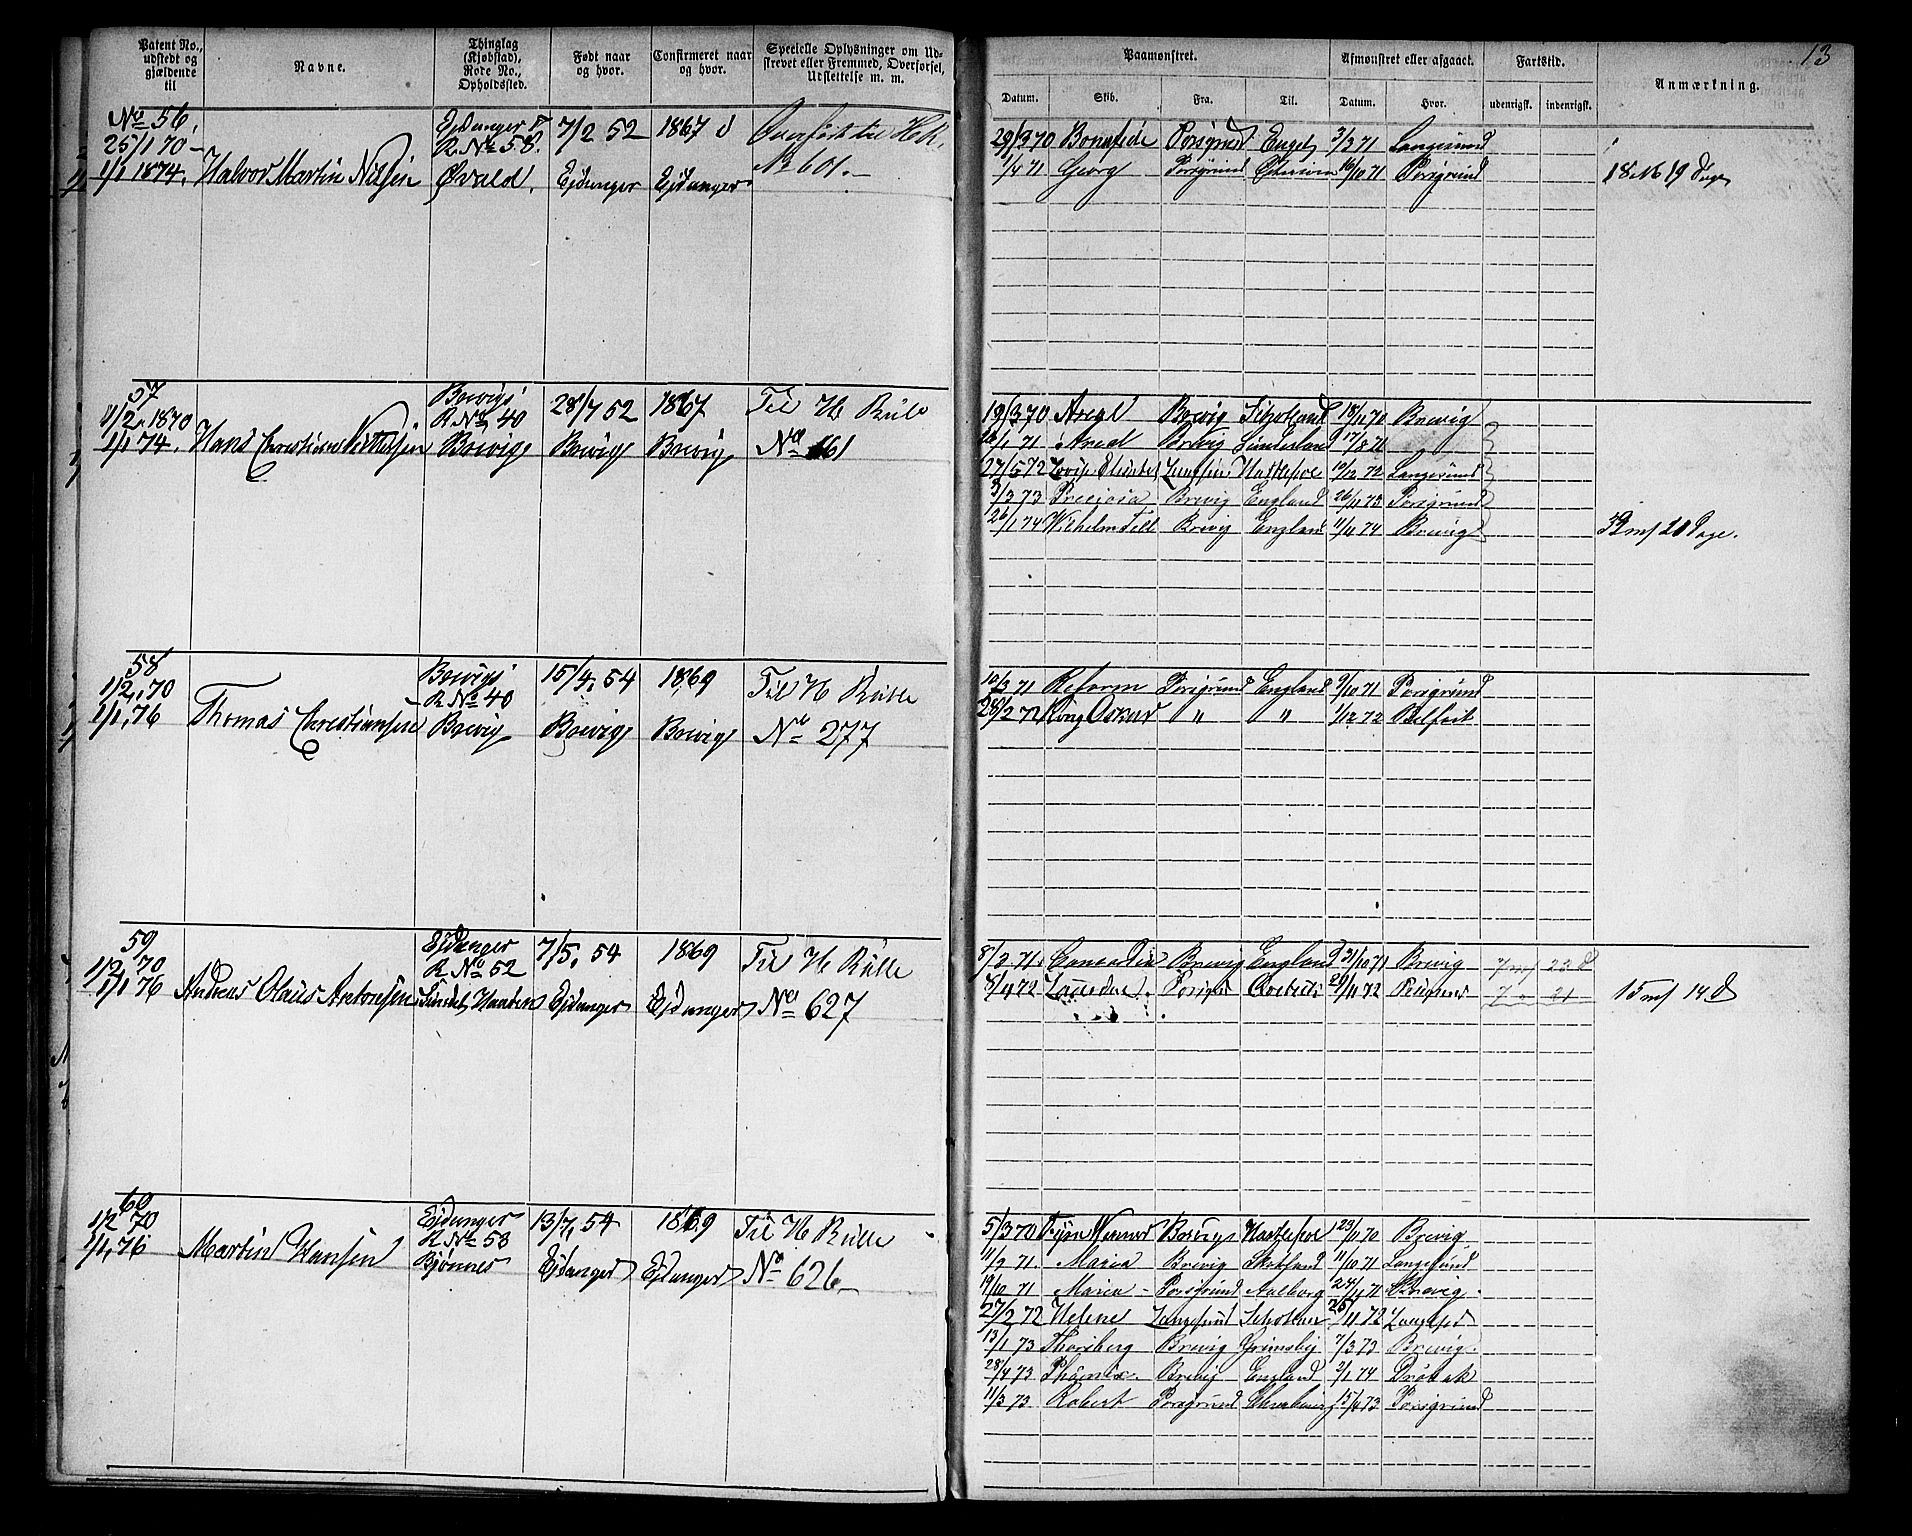 13
Patent No., udstedt og gjældende til
Navne.
Thinglag (Kjøbstad), Rode No., Opholdssted.
Født naar og hvor.
Confirmeret naar og hvor.
Specielle Oplysninger om Udskrevet eller Fremmed, Overførsel, Udslettelse m. m.
Paamønstret.
Afmønstret eller afgaaet.
Fartstid.
Anmærkning.
Datum. Skib. Fra. Til. Datum. Hvor. udenrigsk. indenrigsk.
No 56
25/1 70
1/1 1874. Halvor Martin Nilsen
Ejdanger
R. No 58.
Øvald.
7/2 52
Ejdanger
1867
Ejdanger
No 601.
29/3 70 Bonafide Porsgrund Engel 3/3 71 Langesund
1/4 71 Georg Porsgrund 16/10 71 Porsgrund
18 M 19 Dage
57
11/2 1870
1/1 74. Hans Christian
Brevigs
R No 40
Brevig
28/7 52
Brevig
1867
Brevig
Til H Rulle
No 661
19/3 70 Axel Brevig Skotland 18/11 70 Brevig
1 71 Axel Brevig Sunderland 17/8 71
27/5 72 19/12 72 Langesund
3/3 73 Preciosa Brevig England 26/11 73 Porsgrund
26/1 74 Wilhelm Tell Brevig England 11/11 74 Brevig
32 m/ 20 Dage.
58
1/2 70
1/1 76 Thomas Christiansen
Brevigs
R No 40
Brevig
15/4 54
Brevig
1869
Brevig
Til H Rulle
No 277
10/3 71 Reform Porsgrund England 9/10 71 Porsgrund
28/2 72 Kong Oskar " " 1/12 72 Belfast
59
1/2 70
1/1 76 Andreas Olaus Antonsen
Ejdanger
R No 52
7/5 54
Ejdanger
1869
Ejdanger
Til H Rulle
No 627
8/2 71 Concordia Brevig England 31/10 71 Brevig 7 m/ 23 d
8/4 72 29/11 72 7 " 21
15 m/ 14 d
60
1/2 70
1/1 76 Martin Hansen
Ejdanger
R No 53
Bjønnes
13/7 54
Ejdanger
1869
Ejdanger
Til H Rulle
No 626
5/3 70 Brevigs Hartlepool 23/11 70 Brevig
11/2 71 Maria Brevig Skotland 11/10 71 Langesund
19/10 71 Maria Porsgrund Aalborg 24/11 71 Brevig
27/2 72 Helene Langesund 26/11 72
13/1 73 Thorsberg Brevig Grimsby 7/3 73 Brevig
28/4 73 Phønix Brevig England 2/1 74 Drøbak
11/3 73 Robert Porsgrund Cherbourg 15/4 73 Porsgrund